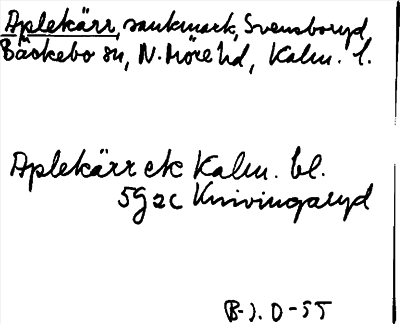 Aplekärr, sankmark, Svensboryd,
Bäckebo sn, N. Möre hd, Kalm. l.
Aplekärr ek Kalm. bl.
5g2c Knivingaryd
B-J. O-55